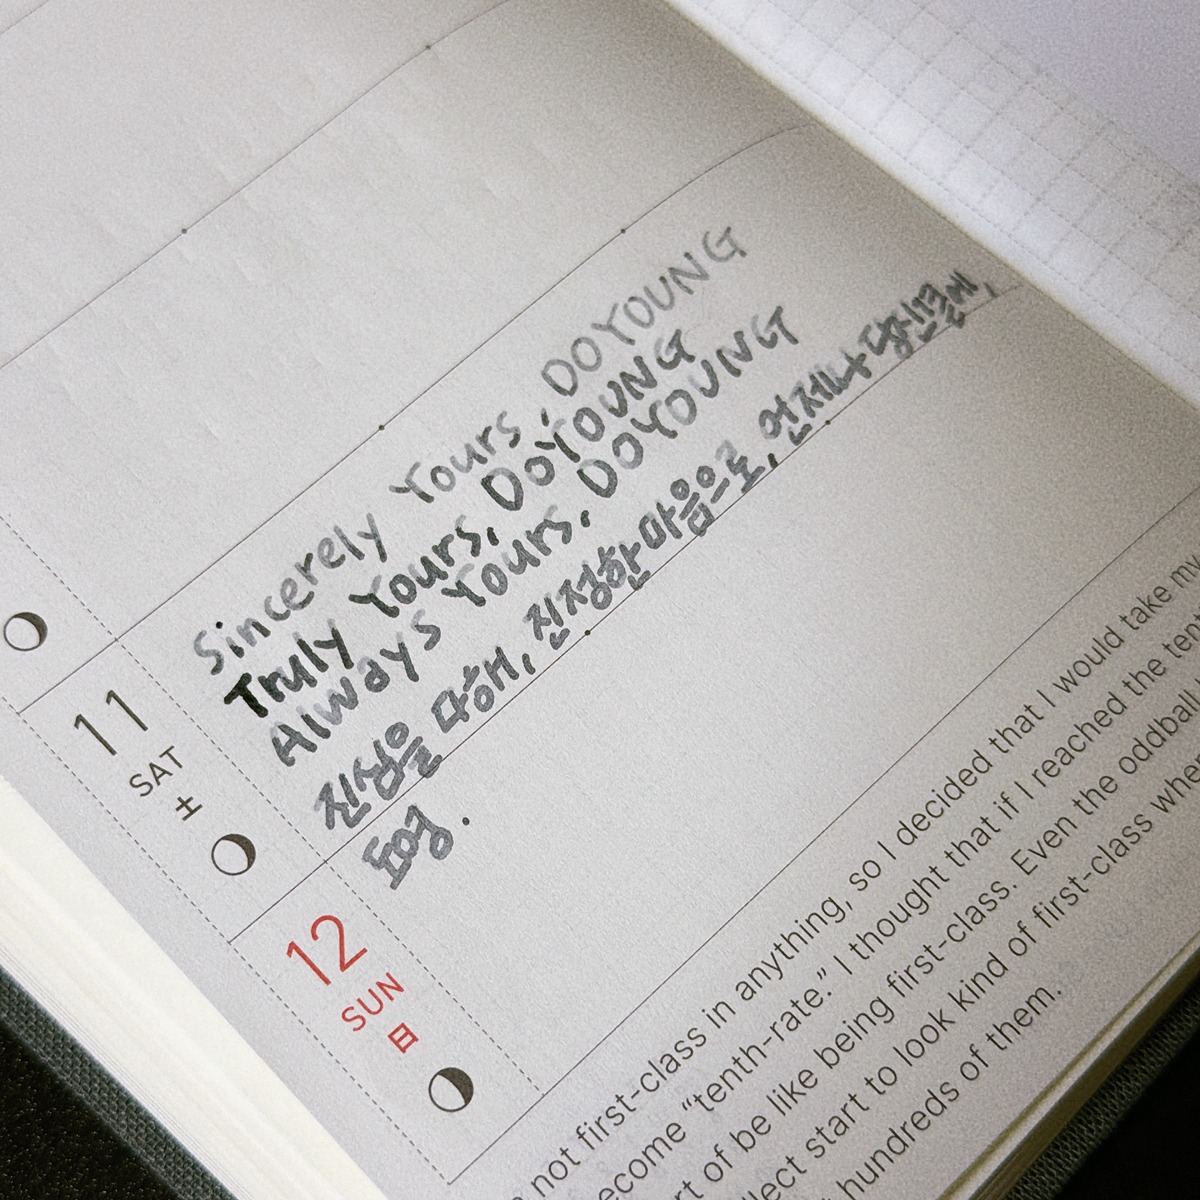 Sincerely Yours, DOYOUNG
Truly Yours, DOYOUNG
Always Yours, DOYOUNG
진심을 다해, 진정한 마음으로, 언제나 당신들에,
도영.
11
SAT
土
12
SUN
日
not first-class in anything, so I decided that I would take my
ecome “tenth-rate.” I thought that if I reached the tent
rt of be like being first-class. Even the oddball
llect start to look kind of first-class when
hundreds of them.